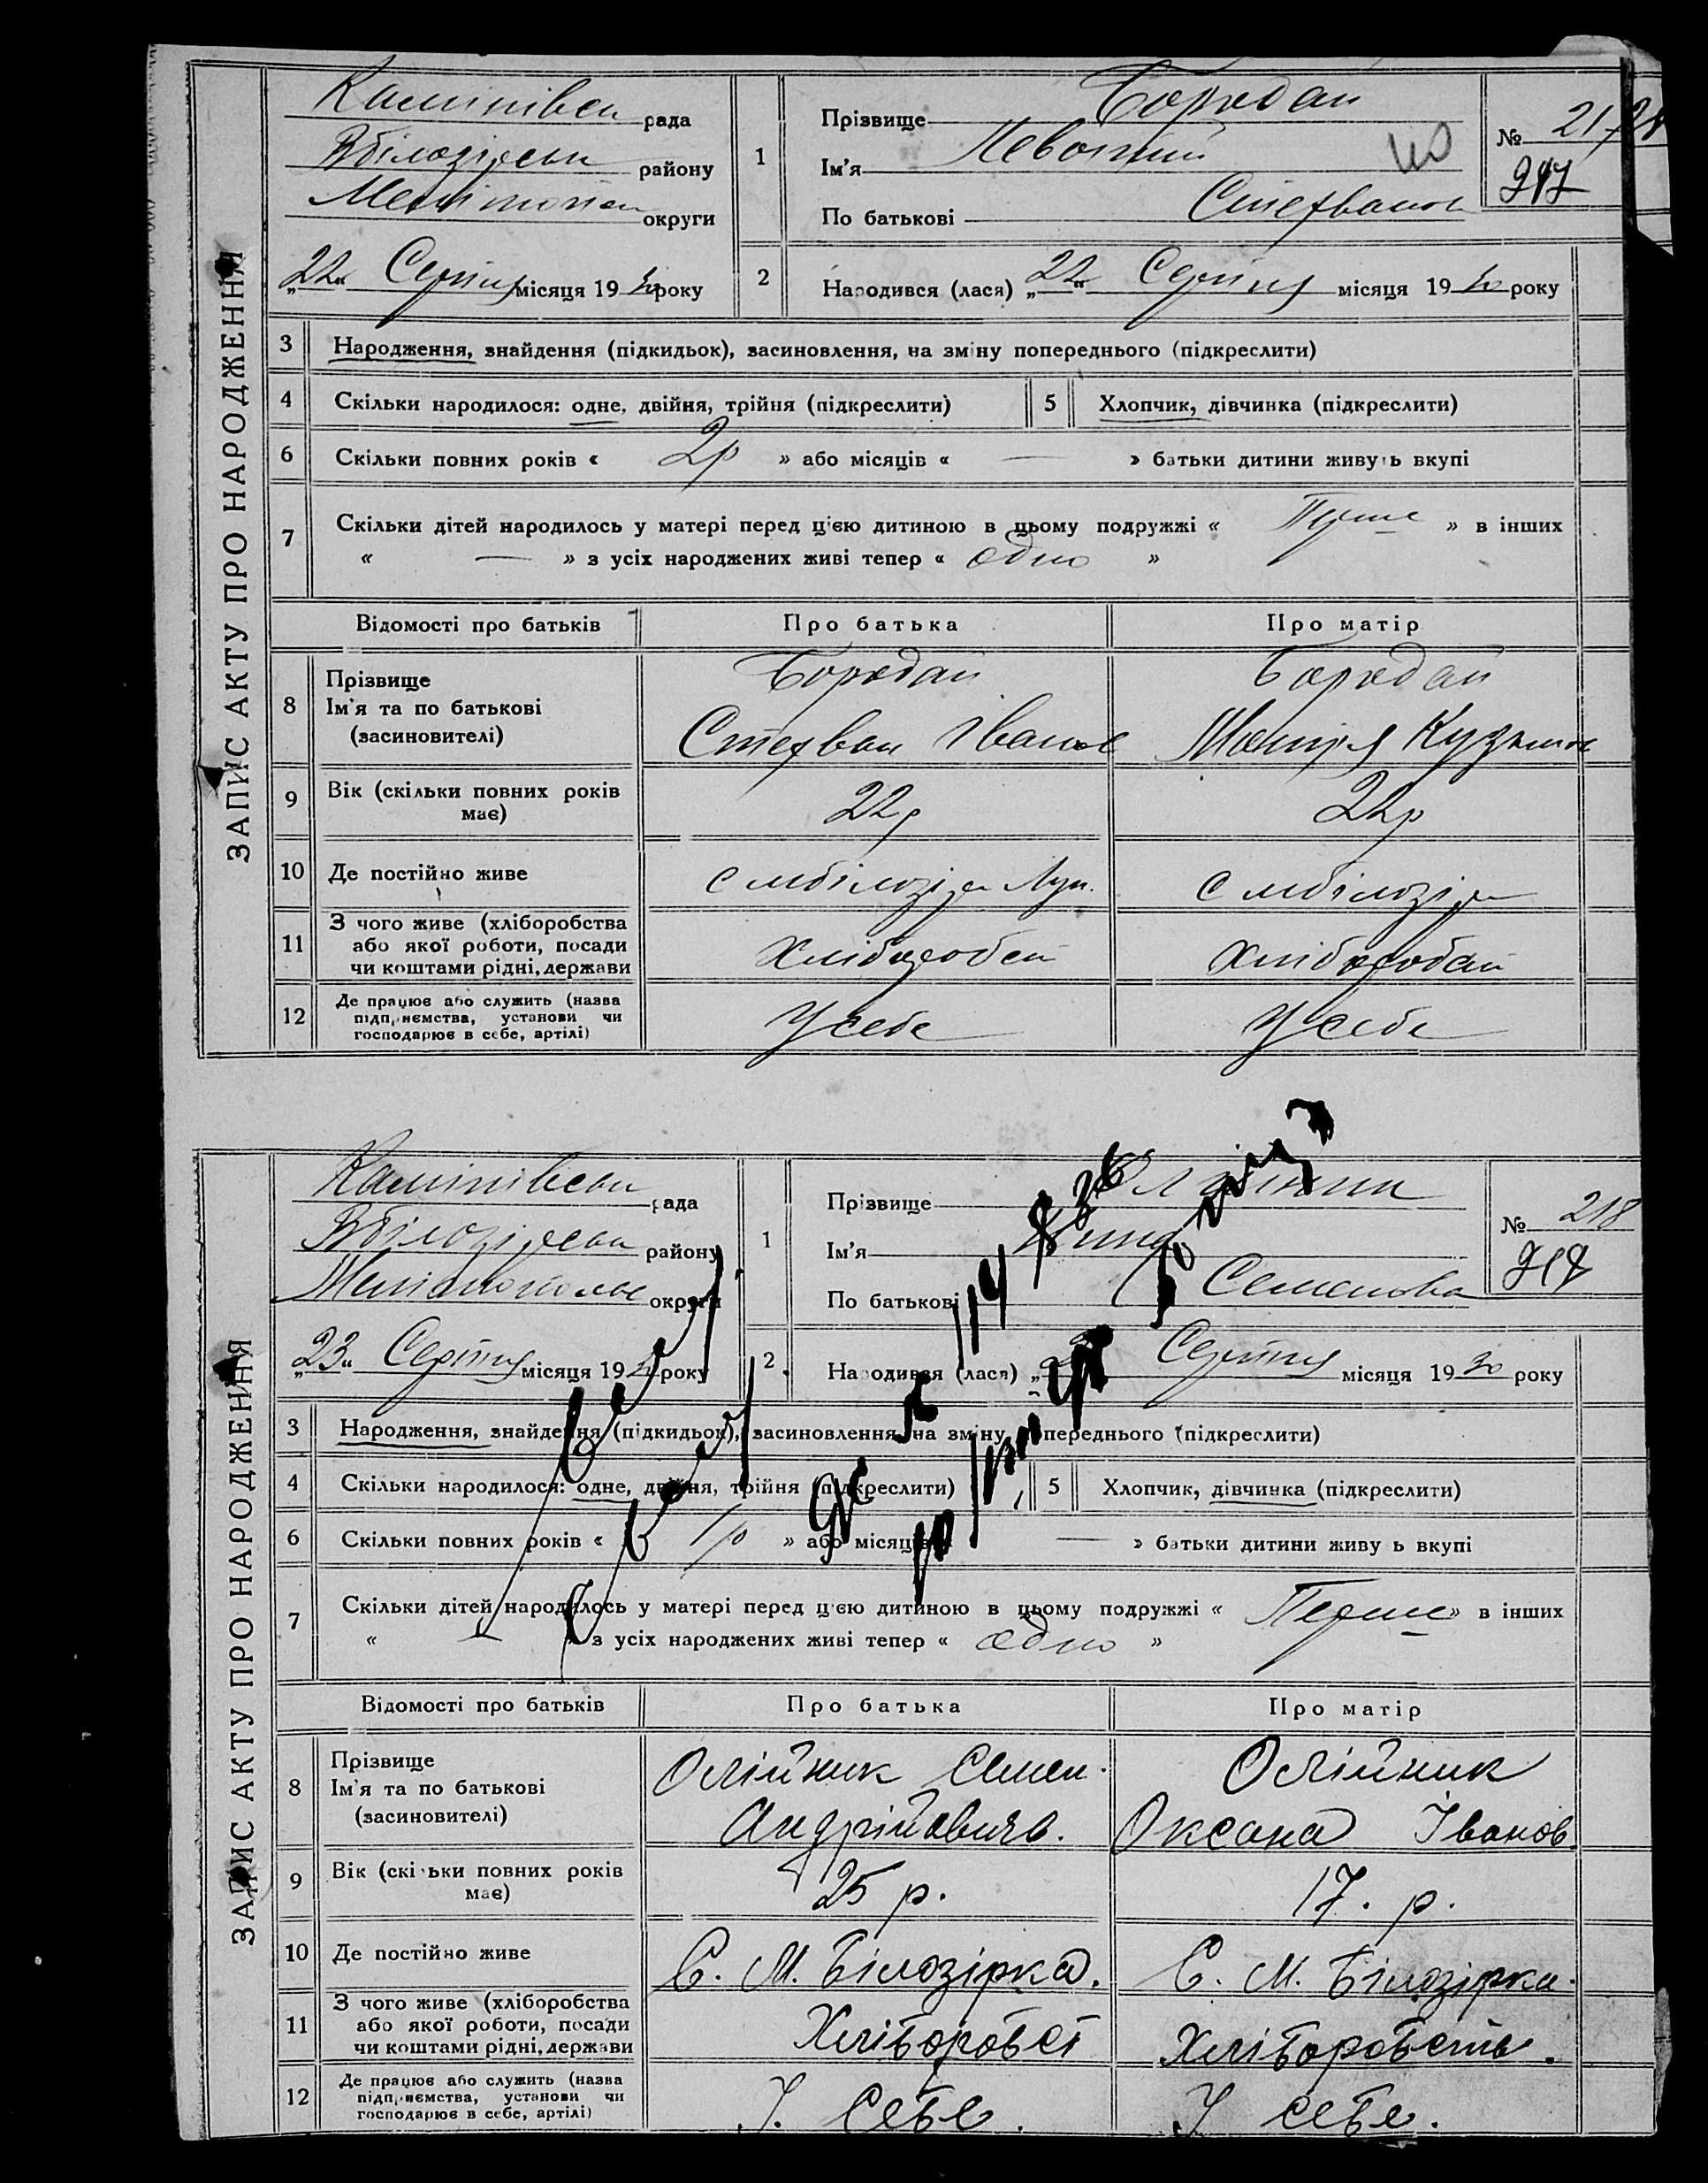 ЗАПИС АКТУ ПРО НАРОДЖЕННЯ
рада
району
округи
„22“ Серпня місяця 1930 року
1
Прізвище Бородай
Ім'я
По батькові Стефванов
№ 217
217
2
Народився (лася) „22“ Серпня місяця 1930 року
3 Народження, знайдення (підкидьок), засиновлення, на зміну попереднього (підкреслити)
4 Скільки народилося: одне, двійня, трійня (підкреслити) 5 Хлопчик, дівчинка (підкреслити)
6 Скільки повних років « 2р » або місяців « — » батьки дитини живуть вкупі
7 Скільки дітей народилось у матері перед цією дитиною в цьому подружжі « Перше » в інших
« — » з усіх народжених живі тепер « одно »
Відомості про батьків Про батька Про матір
8 Прізвище Бородай Бородай
Ім'я та по батькові
(засиновителі) Стефван Іванов Кузьмов
9 Вік (скільки повних років має) 22р 22р
10 Де постійно живе с мбілозірка с мбілозірка
11 З чого живе (хліборобства
або якої роботи, посади
чи коштами рідні, держави
12 Де працює або служить (назва
підприємства, установи чи
господарює в себе, артілі) У себе У себе
ЗАПИС АКТУ ПРО НАРОДЖЕННЯ
рада
району
округи
„23“ Серпня місяця 1930 року
1
Прізвище Олійник
Ім'я
По батькові Семенова
№ 218
218
2
Народився (лася) Серпня місяця 1930 року
3 Народження, знайдення (підкидьок), засиновлення, на зміну попереднього (підкреслити)
4 Скільки народилося: одне, двійня, трійня (підкреслити) 5 Хлопчик, дівчинка (підкреслити)
6 Скільки повних років « 1р » або місяців — » батьки дитини живу ь вкупі
7 Скільки дітей народилось у матері перед цією дитиною в цьому подружжі « Перше » в інших
« — з усіх народжених живі тепер « одно »
Відомості про батьків Про батька Про матір
8 Прізвище Олійник Семен. Олійник
Ім'я та по батькові
(засиновителі) Андрійовичь. Оксана Іванов.
9 Вік (скільки повних років має) 25 р. 17. р.
10 Де постійно живе С. М. Білозірка. С. М. Білозірка.
11 З чого живе (хліборобства
або якої роботи, посади
чи коштами рідні, держави Хліборобст Хліборобств.
12 Де працює або служить (назва
підприємства, установи чи
господарює в себе, артілі) У. себе. У себе.